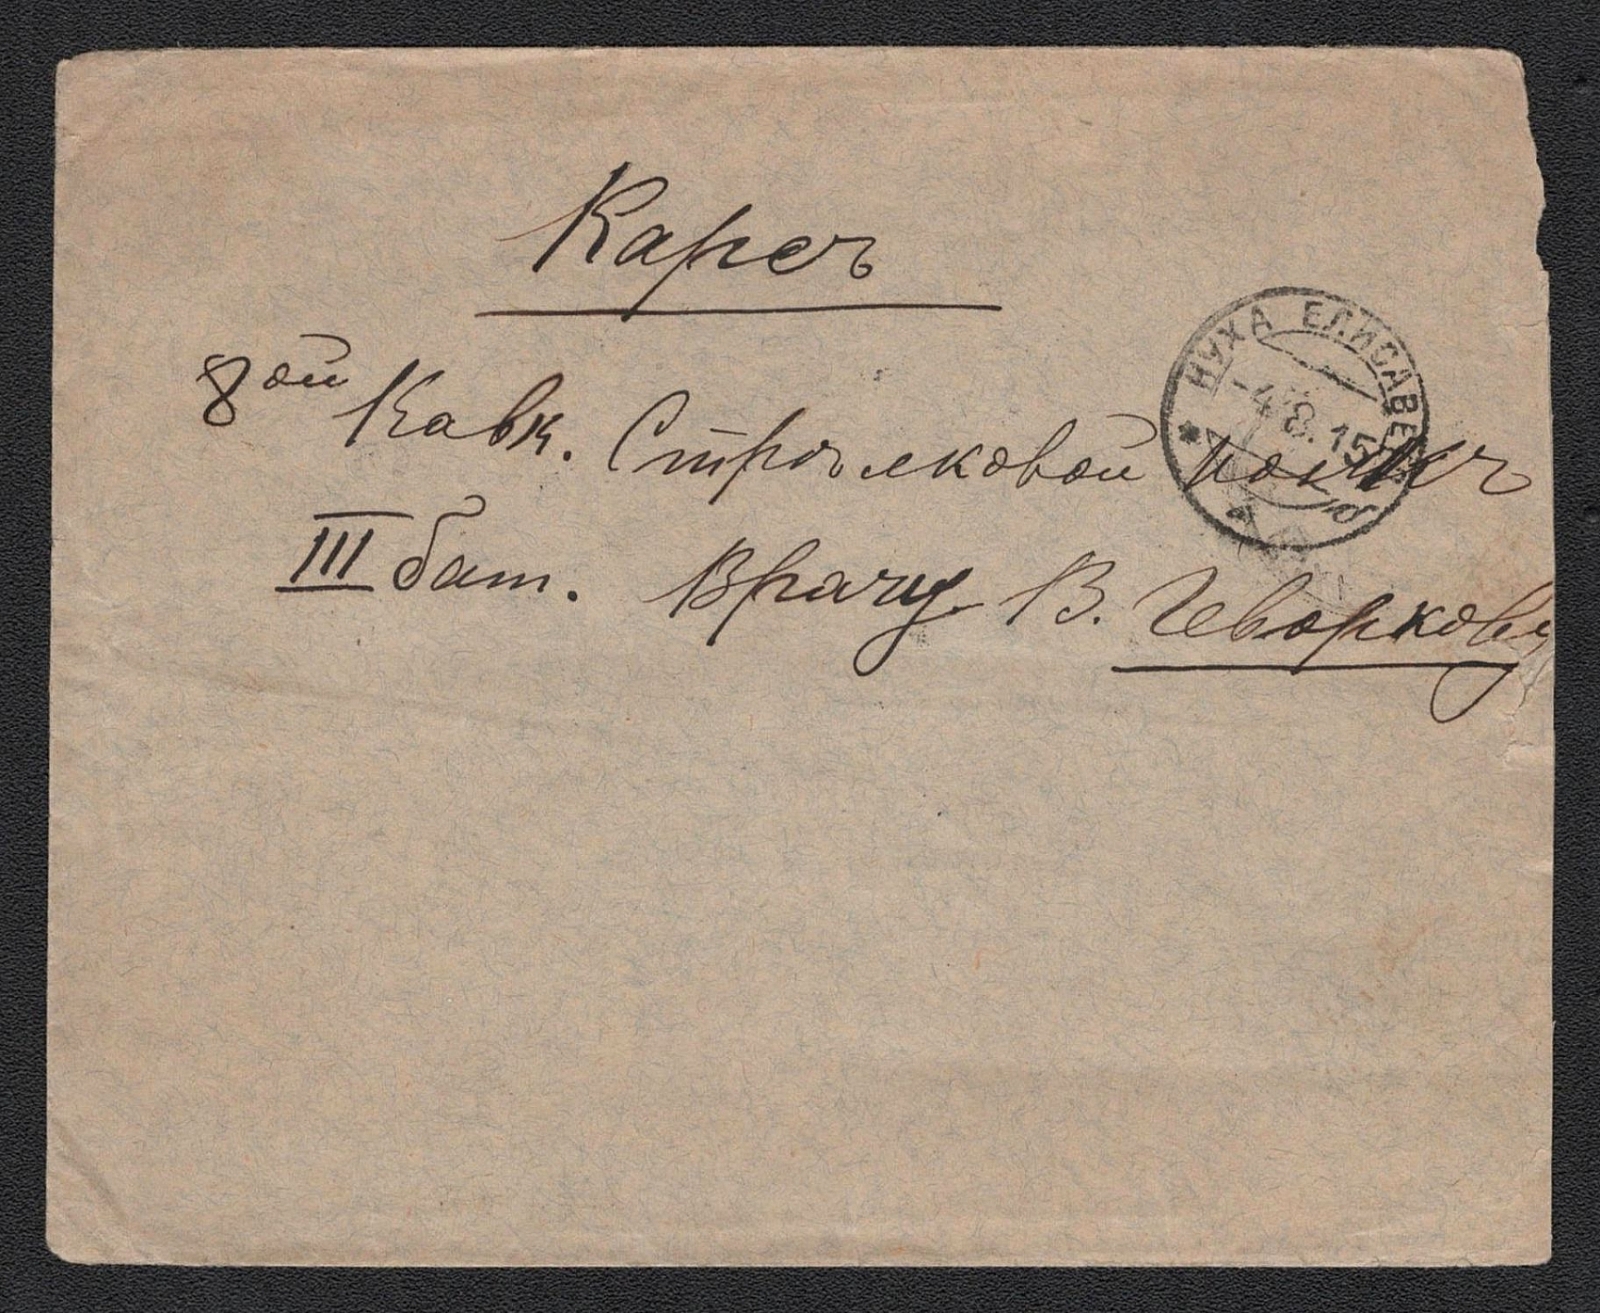 Карсъ
НУХА ЕЛИСАВЕ
-4.8.15
8ой Кавк. Стрѣлковой полкъ
III бат. Врачу В. Геворкову